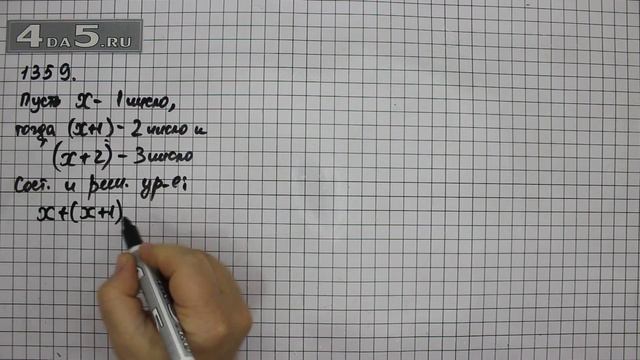 4DA5.RU
1359.
Пусть x - 1 число,
тогда (x+1) - 2 число и
(x+2) - 3 число
Сост. и реш. ур-е:
x+(x+1)